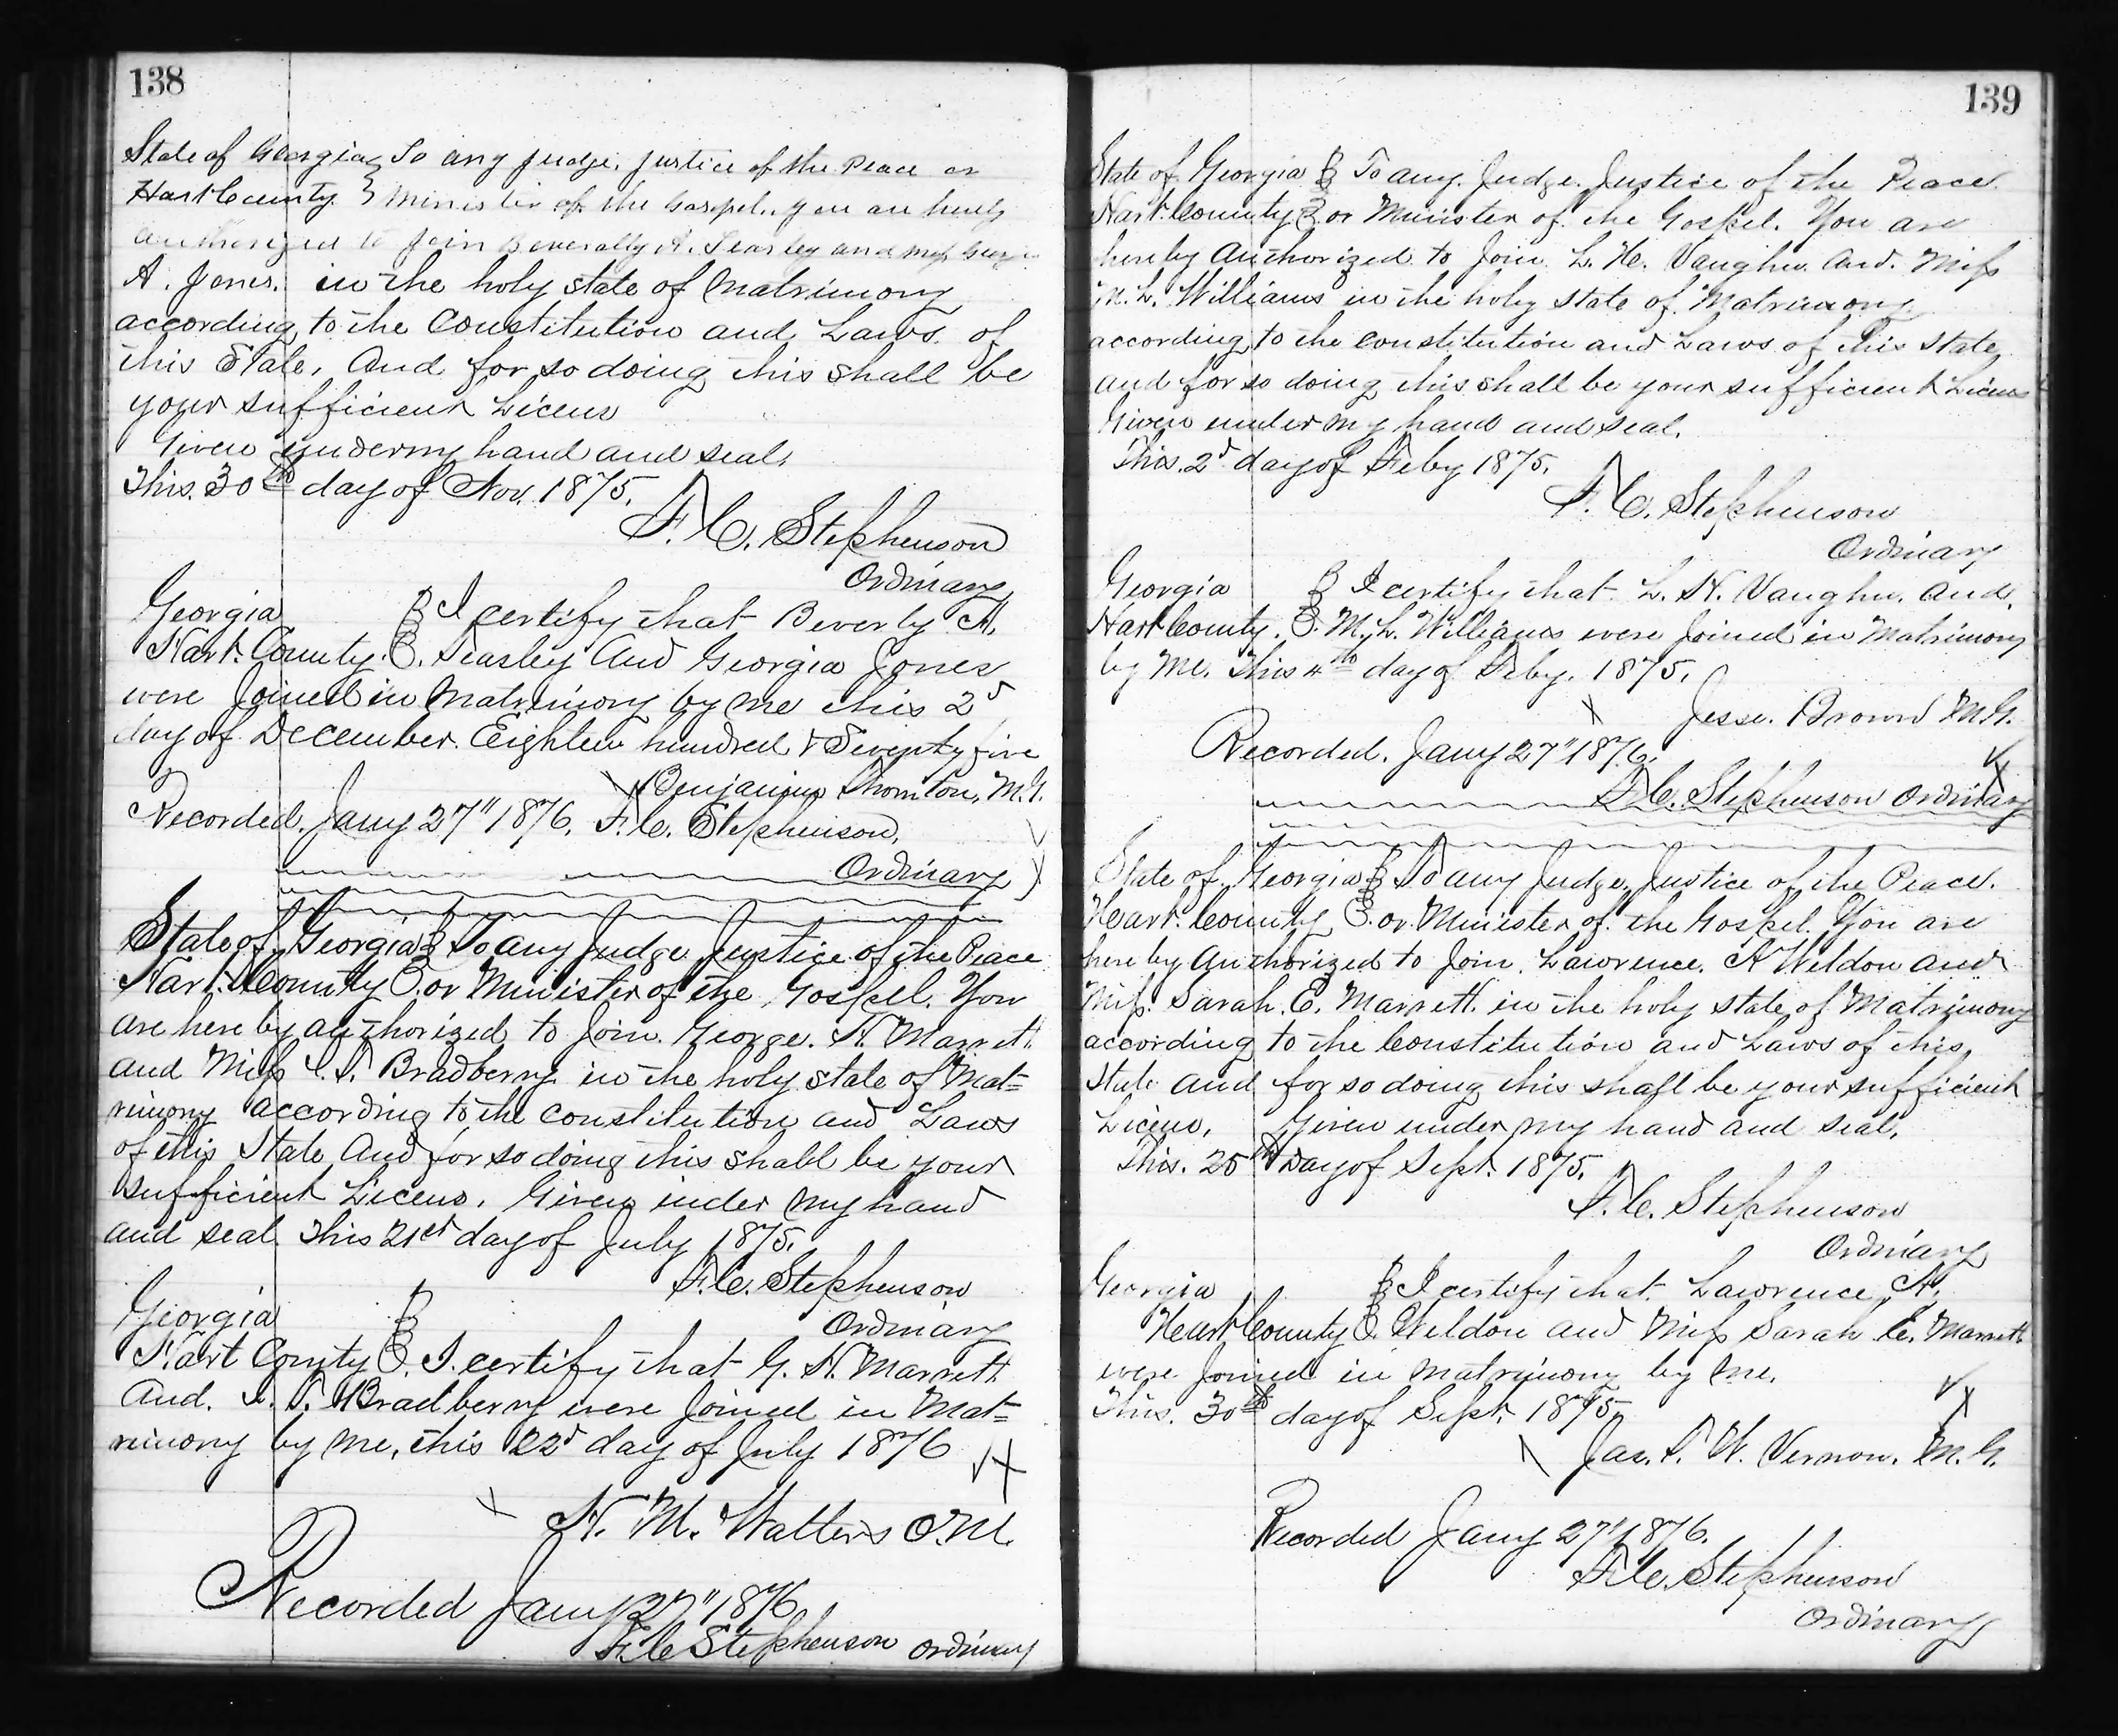 138
State of Georgia } To any Judge, Justice of the Peace or
Hart County } Minister of the Gospel. you are hereby
authorized to Join Beverally A. Teasley and Miss
A. Jones. in the holy state of Matrimony
according to the Constitution and Laws of
this State, And for so doing this shall be
your sufficient Licens
Given under my hand and seal.
This 30th day of Nov. 1875.
F. C. Stephenson
Ordinary
Georgia } I certify that Beverly A.
Hart County }. Teasley And Georgia Jones
were Joined in Matrimony by me this 2d
day of December. Eighteen hundred & Seventy five
Benjamin Thornton, M.G.
Recorded. Jany 27" 1876. F. C. Stephenson,
Ordinary
State of Georgia } To any Judge Justice of the Peace
Hart County } or Minister of the Gospel. You
are here by authorized to Join George. H. Marrett
and Miss Bradberry in the holy state of Mat=
rimony according to the constitution and Laws
of this State And for so doing this shall be your
sufficient Licens. Given under my hand
and seal. This 21st day of July 1875.
F. C. Stephenson
Ordinary
Georgia }
Hart County }. I certify that G. H. Marrett
And. Bradberry were Joined in Mat=
rimony by me, this 22d day of July 1876
H. M. Walters O.M.
Recorded Jany 27" 1876
F. C. Stephenson ordinary
139
State of Georgia } To any Judge Justice of the Peace
Hart County } or Minister of the Gospel. You are
here by Authorized to Join L. H. Vaughn And. Miss
M. L. Williams in the holy state of Matrimony
according to the constitution and Laws of this state
and for so doing this shall be your sufficient Licens
Given under my hand and seal.
This 2d day of Feby 1875.
F. C. Stephenson
Ordinary
Georgia } I certify that L. H. Vaughn. And.
Hart County. }. M. L. Williams were Joined in Matrimony
by Me. This 4th day of Feby. 1875.
Jesse. Brown M.G.
Recorded. Jany 27" 1876.
F. C. Stephenson Ordinary
State of Georgia } To any Judge Justice of the Peace.
Hart County }. or Minister of the Gospel. You are
here by Authorized to Join Lawrence. A Weldon and
Miss. Sarah. E. Marrett. in the holy state of Matrimony
according to the Constitution and Laws of this
State and for so doing this shall be your sufficient
Licens, Given under my hand and seal.
This. 25th Day of Sept. 1875.
F. C. Stephenson
Ordinary
Georgia } I certify that Lawrence A.
Hart County }. Weldon and Miss Sarah E. Marrett
were Joined in Matrimony by Me.
This. 30th day of Sept. 1875.
Jas. T. W. Vernon. M.G.
Recorded Jany 27" 1876.
F. C. Stephenson
Ordinary